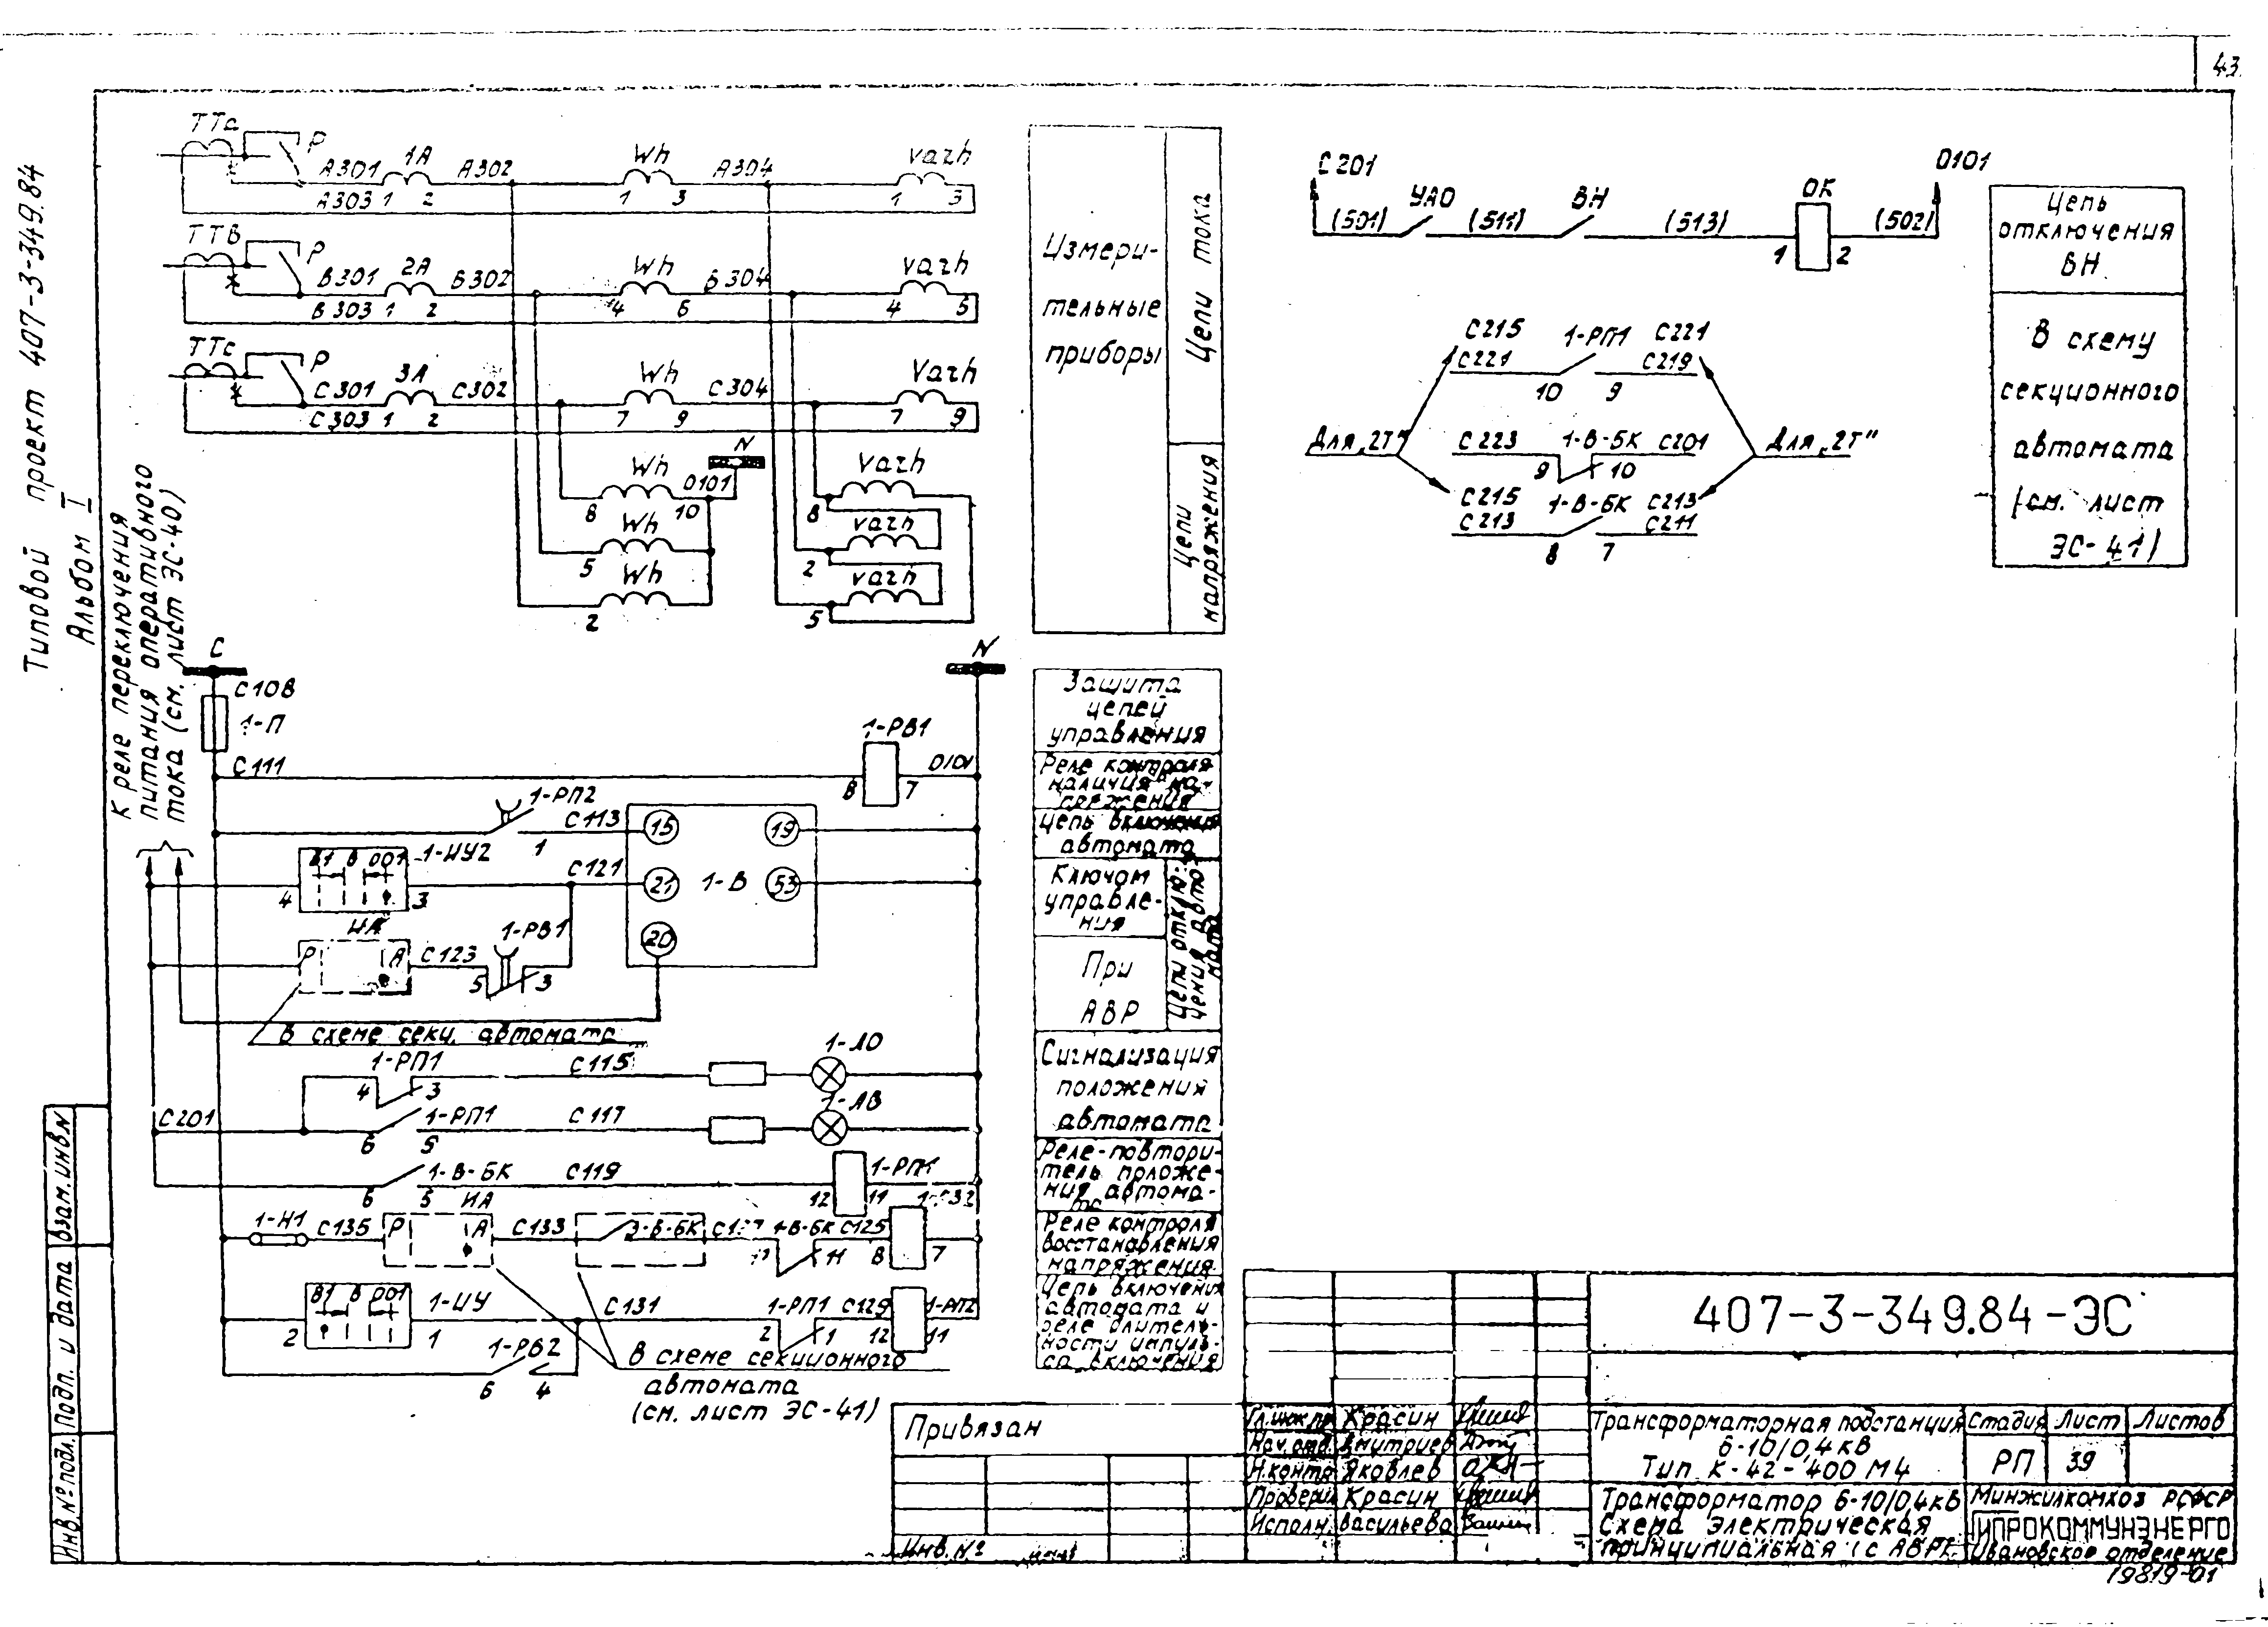 43
Типовой проект 407-3-349.84
Альбом I
ТТа
Р
А301
1А
А302
Wh
А304
varh
А303
1
2
1
3
1
3
ТТв
Р
В301
2А
В302
Wh
В304
varh
В303
1
2
4
6
4
5
ТТс
Р
С301
3А
С302
Wh
С304
Varh
С303
1
2
7
9
7
9
N
Wh
0101
Varh
8
10
8
Wh
varh
5
2
Wh
varh
2
5
Измери-
тельные
приборы
Цепи тока
Цепи
напряжения
С201
0101
УАО
ВН
ОК
(501)
(511)
(513)
(502)
1
2
Цепь
отключения
ВН
С215
1-РП1
С221
С221
С219
10
9
Для „2Т"
С223
1-В-БК
С201
Для „2Т"
9
10
С215
1-В-БК
С213
С213
С211
8
7
В схему
секционного
автомата
(см. лист
ЭС-41)
К реле переключения
питания оперативного
тока (см. лист ЭС-40)
С
N
С108
1-П
С111
1-РВ1
0101
8
7
1-РП2
С113
1
15
19
В1 В 001
1-ИУ2
4
3
С121
21
1-В
53
ИА
Р
А
С123
1-РВ1
5
3
20
В схеме секц. автомата
1-РП1
4
3
С115
1-ЛО
С201
1-РП1
6
5
С117
1-ЛВ
1-В-БК
6
5
С119
1-РП1
12
11
1-Н1
С135
ИА
Р
А
С133
3-В-БК
1-В-БК
С125
11
8
7
В1 В 001
1-ИУ
2
1
С131
1-РП1
2
1
С129
1-РП2
12
11
1-РВ2
6
4
В схеме секционного
автомата
(см. лист ЭС-41)
Защита
цепей
управления
Реле контроля
наличия на-
пряжения
Цепь включения
автомата
Ключом
управле-
ния
При
АВР
Цепи отклю-
чения авто-
мата
Сигнализация
положения
автомата
Реле-повтори-
тель положе-
ния автома-
та
Реле контроля
восстановления
напряжения
Цепь включения
автомата и
реле длитель-
ности импуль-
са включения
Взам.инв.N
Подп. и дата
Инв.№ подл.
Привязан
Инв.№
Гл.инж.пр. Красин
Нач.отд. Дмитриев
Н.контр. Яковлев
Проверил Красин
Исполн. Васильева
407-3-349.84-ЭС
Трансформаторная подстанция
6-10/0,4 кв
Тип К-42-400 М4
Стадия
Лист
Листов
РП
39
Трансформатор 6-10/0,4кв
Схема электрическая
принципиальная (с АВР).
Минжилкомхоз РСФСР
ГИПРОКОММУНЭНЕРГО
Ивановское отделение
19819-01